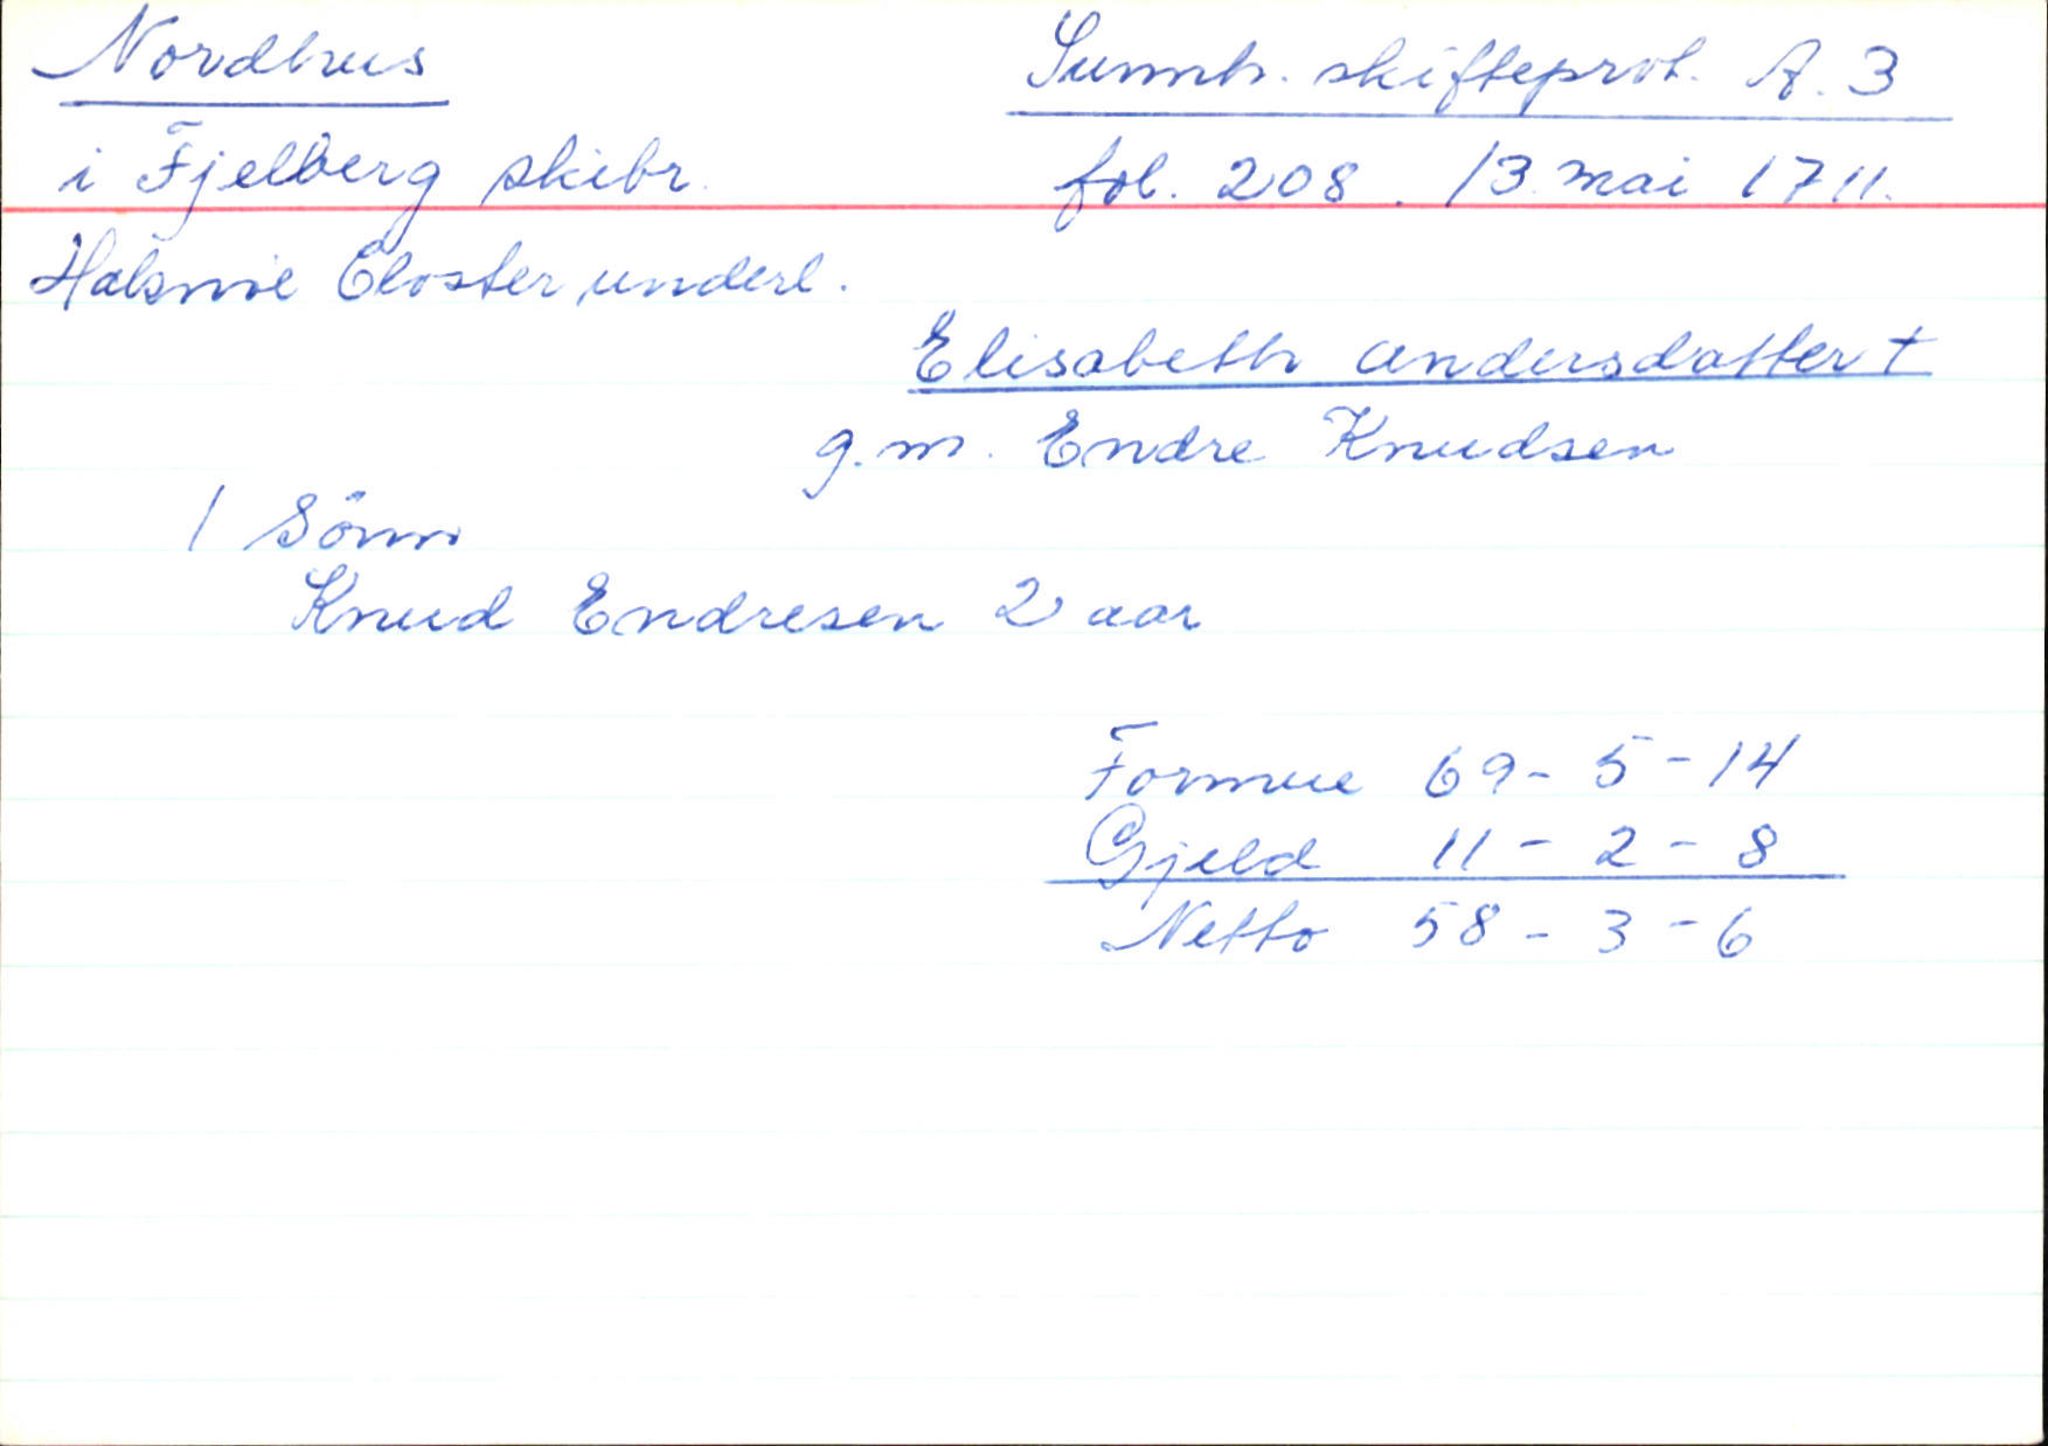 Nordhus
Sunnh. skifteprot. A. 3
i Fjelberg skibr.
fol. 208. 13 mai 1711.
Halsnöe Closter underl.
Elisabeth Andersdatter †
g. m. Endre Knudsen
1 Sönn
Knud Endresen 2 aar
Formue 69 - 5 - 14
Gjeld 11 - 2 - 8
Netto 58 - 3 - 6